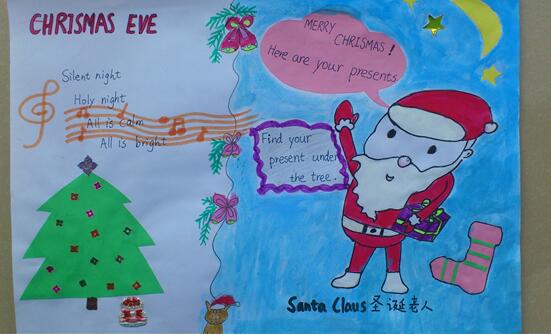 CHRISMAS EVE
Silent night
Holy night
All is calm
All is bright
MERRY
CHRISMAS!
Here are your presents
Find your
present under
the tree.
Santa Claus 圣诞老人